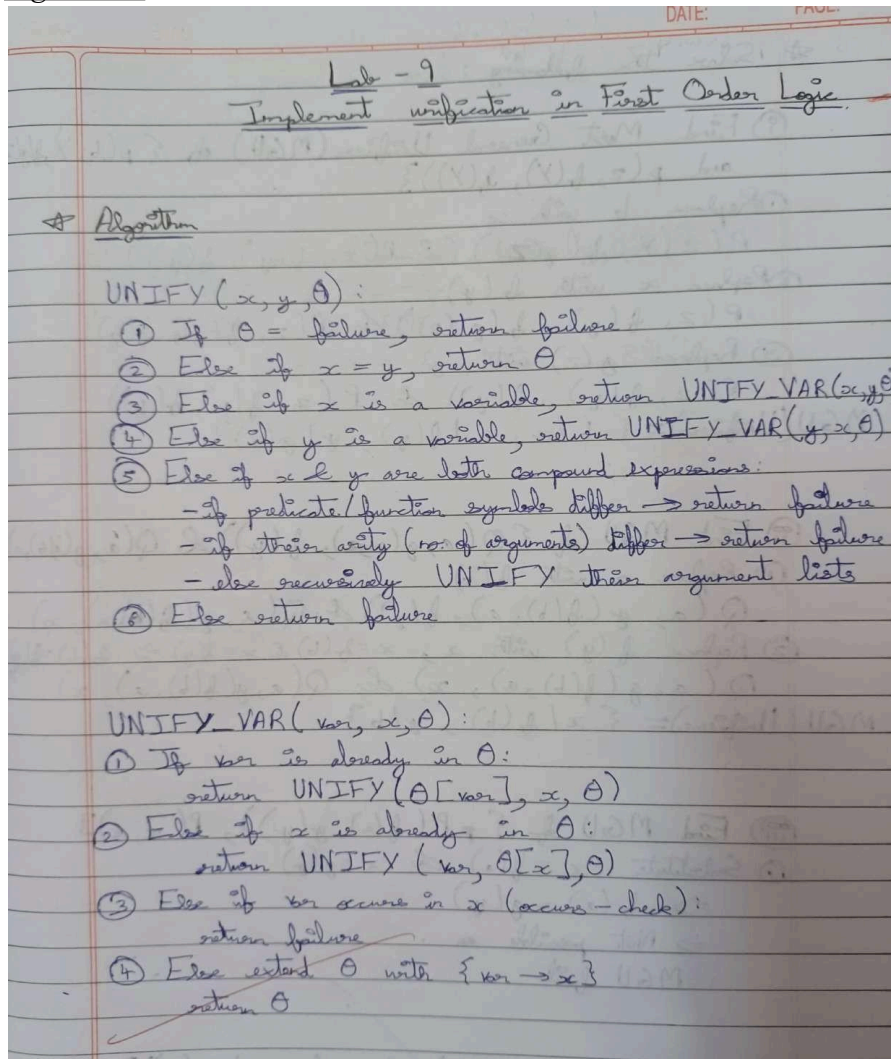 DATE:
PAGE:
Lab - 9
Implement unification in First Order Logic
Algorithm
UNIFY (x, y, θ) :
① If θ = failure, return failure
② Else if x = y, return θ
③ Else if x is a variable, return UNIFY_VAR(x,y,θ)
④ Else if y is a variable, return UNIFY_VAR(y,x,θ)
⑤ Else if x & y are both compound expressions:
- if predicate/function symbols differ → return failure
- if their arity (no. of arguments) differ → return failure
- else recursively UNIFY their argument lists
⑥ Else return failure
UNIFY_VAR( var, x, θ) :
① If var is already in θ:
return UNIFY (θ[var], x, θ)
② Else if x is already in θ:
return UNIFY ( var, θ[x],θ)
③ Else if var occurs in x (occurs - check) :
return failure
④ Else extend θ with { var → x }
return θ